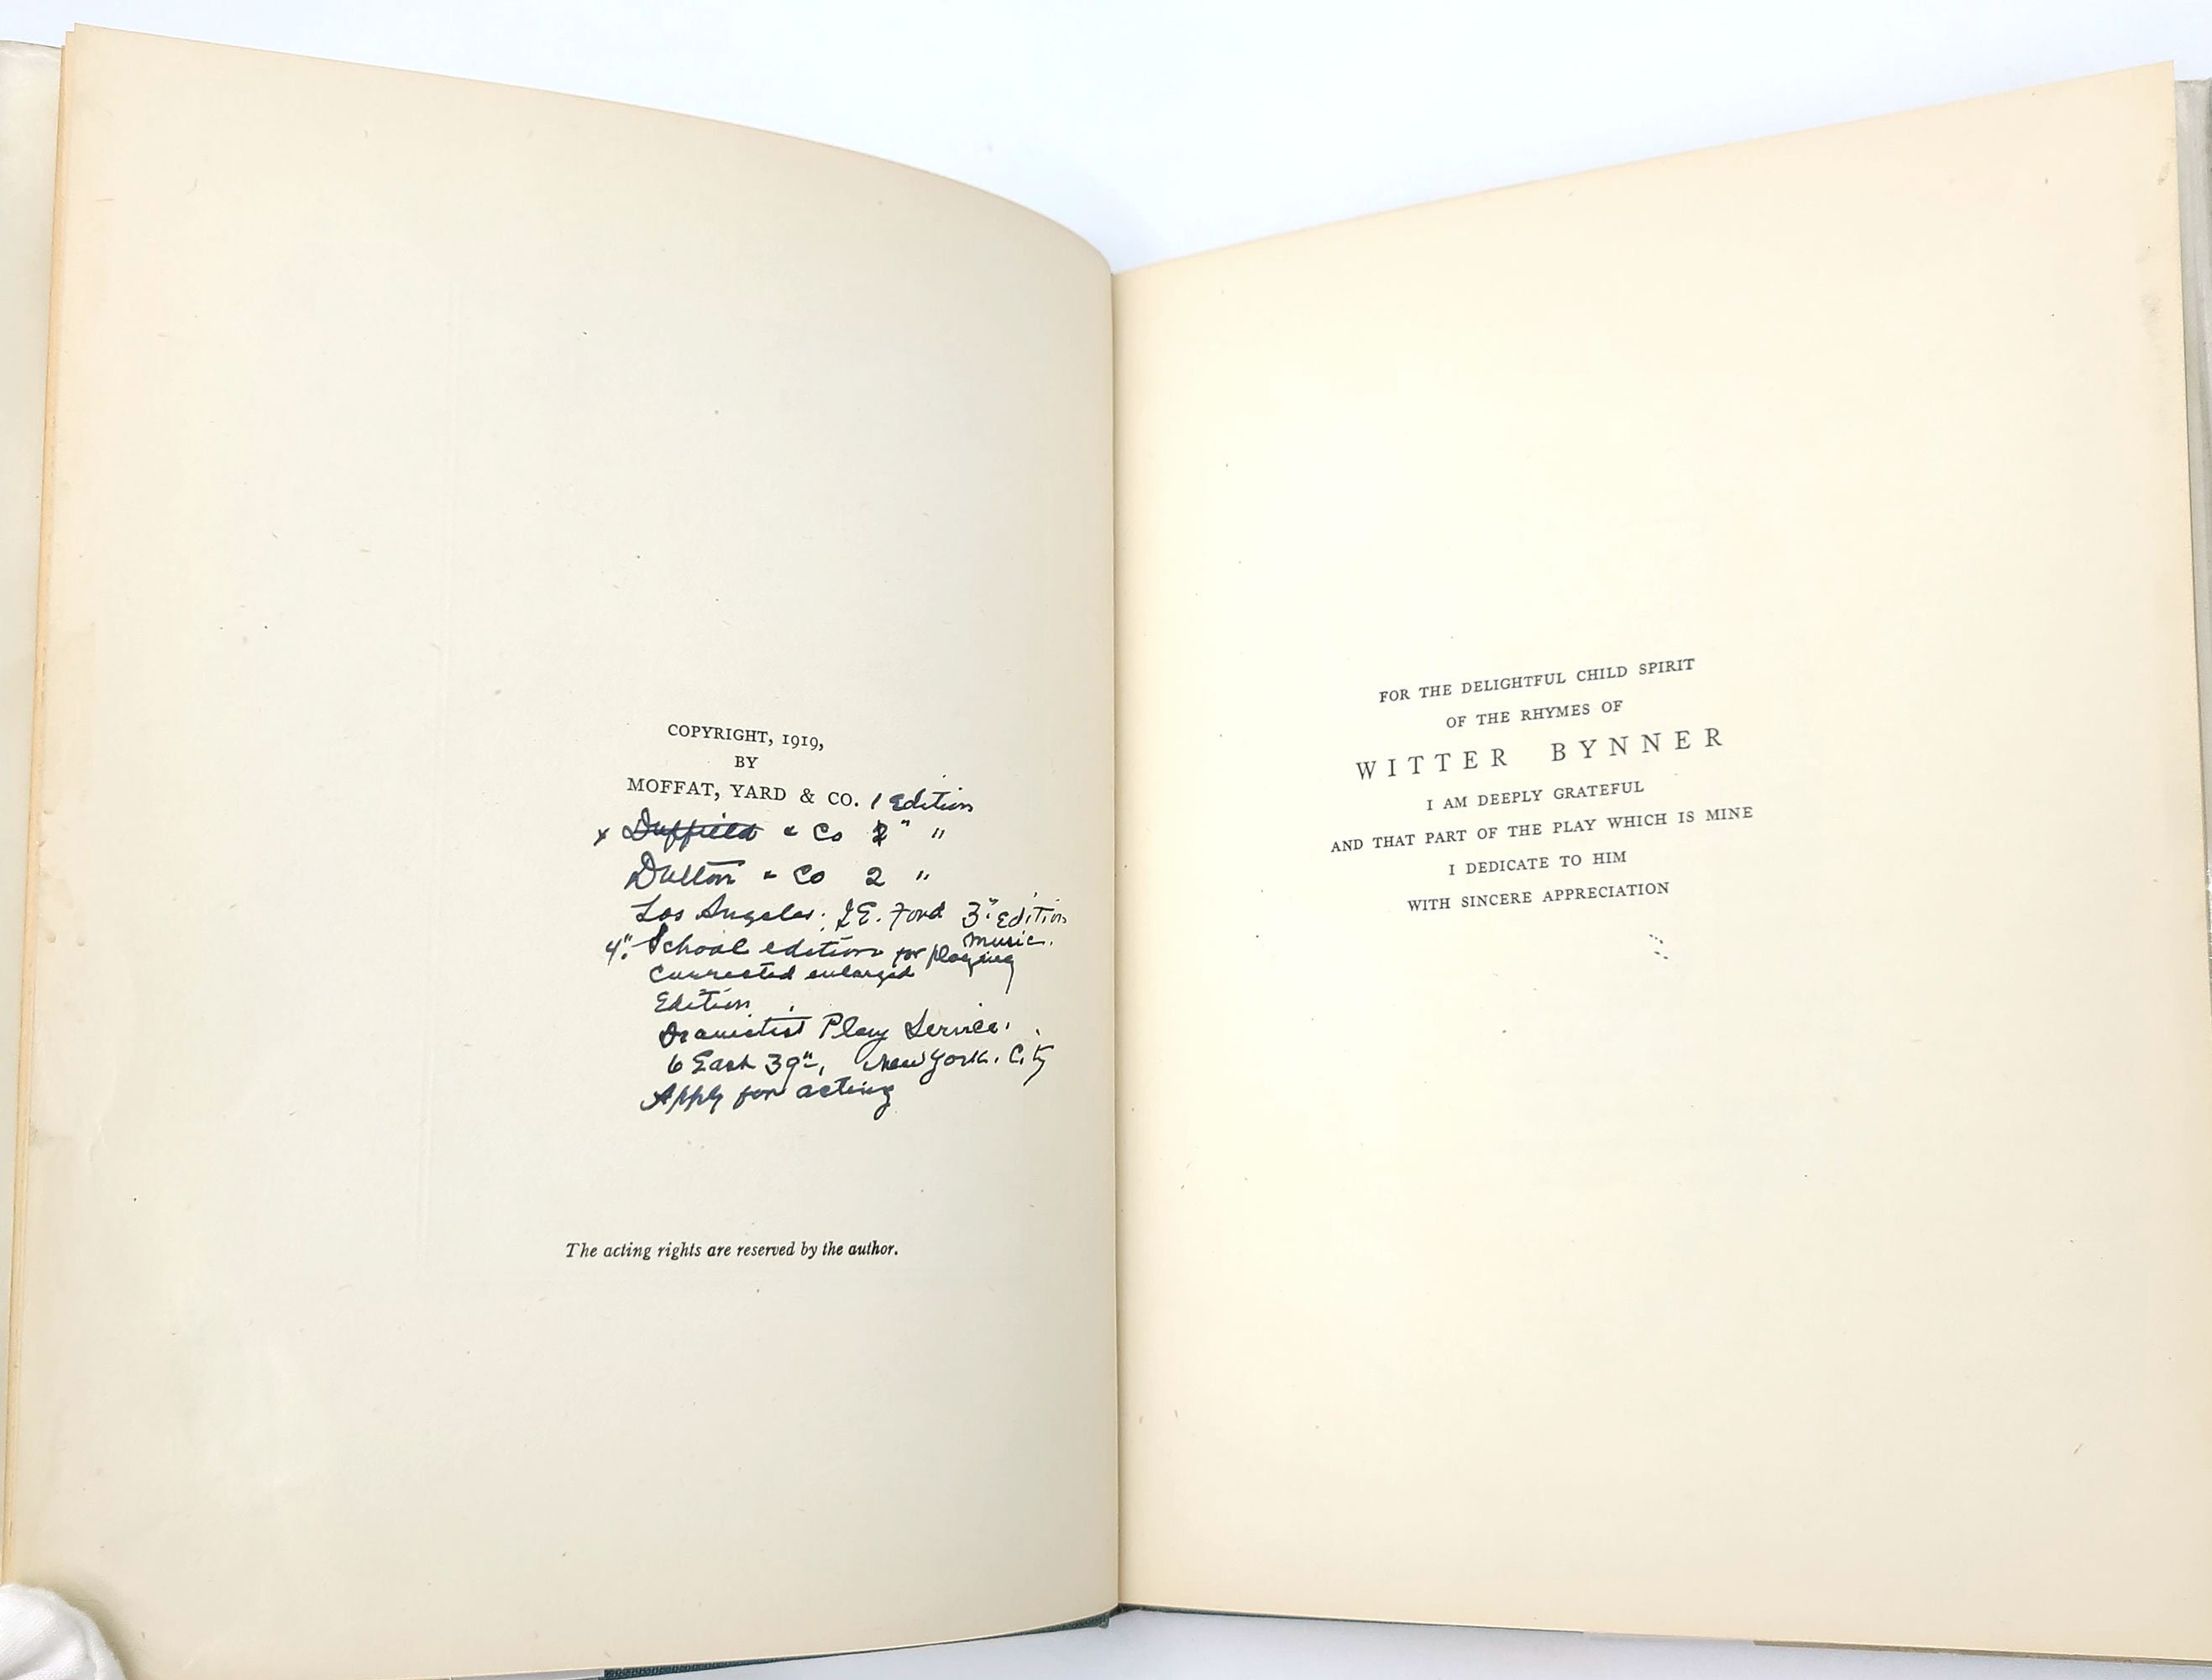 COPYRIGHT, 1919,
BY
MOFFAT, YARD & CO. 1 Edition
x Duffield & Co 2 " "
Dutton & Co 2 "
Los Angeles. J.E. Ford 3" Edition
music.
4". School edition for playing
Currected enlarged
Edition
Dramatist Play Service.
6 East 39", New York. City
Apply for acting
The acting rights are reserved by the author.
FOR THE DELIGHTFUL CHILD SPIRIT
OF THE RHYMES OF
WITTER BYNNER
I AM DEEPLY GRATEFUL
AND THAT PART OF THE PLAY WHICH IS MINE
I DEDICATE TO HIM
WITH SINCERE APPRECIATION